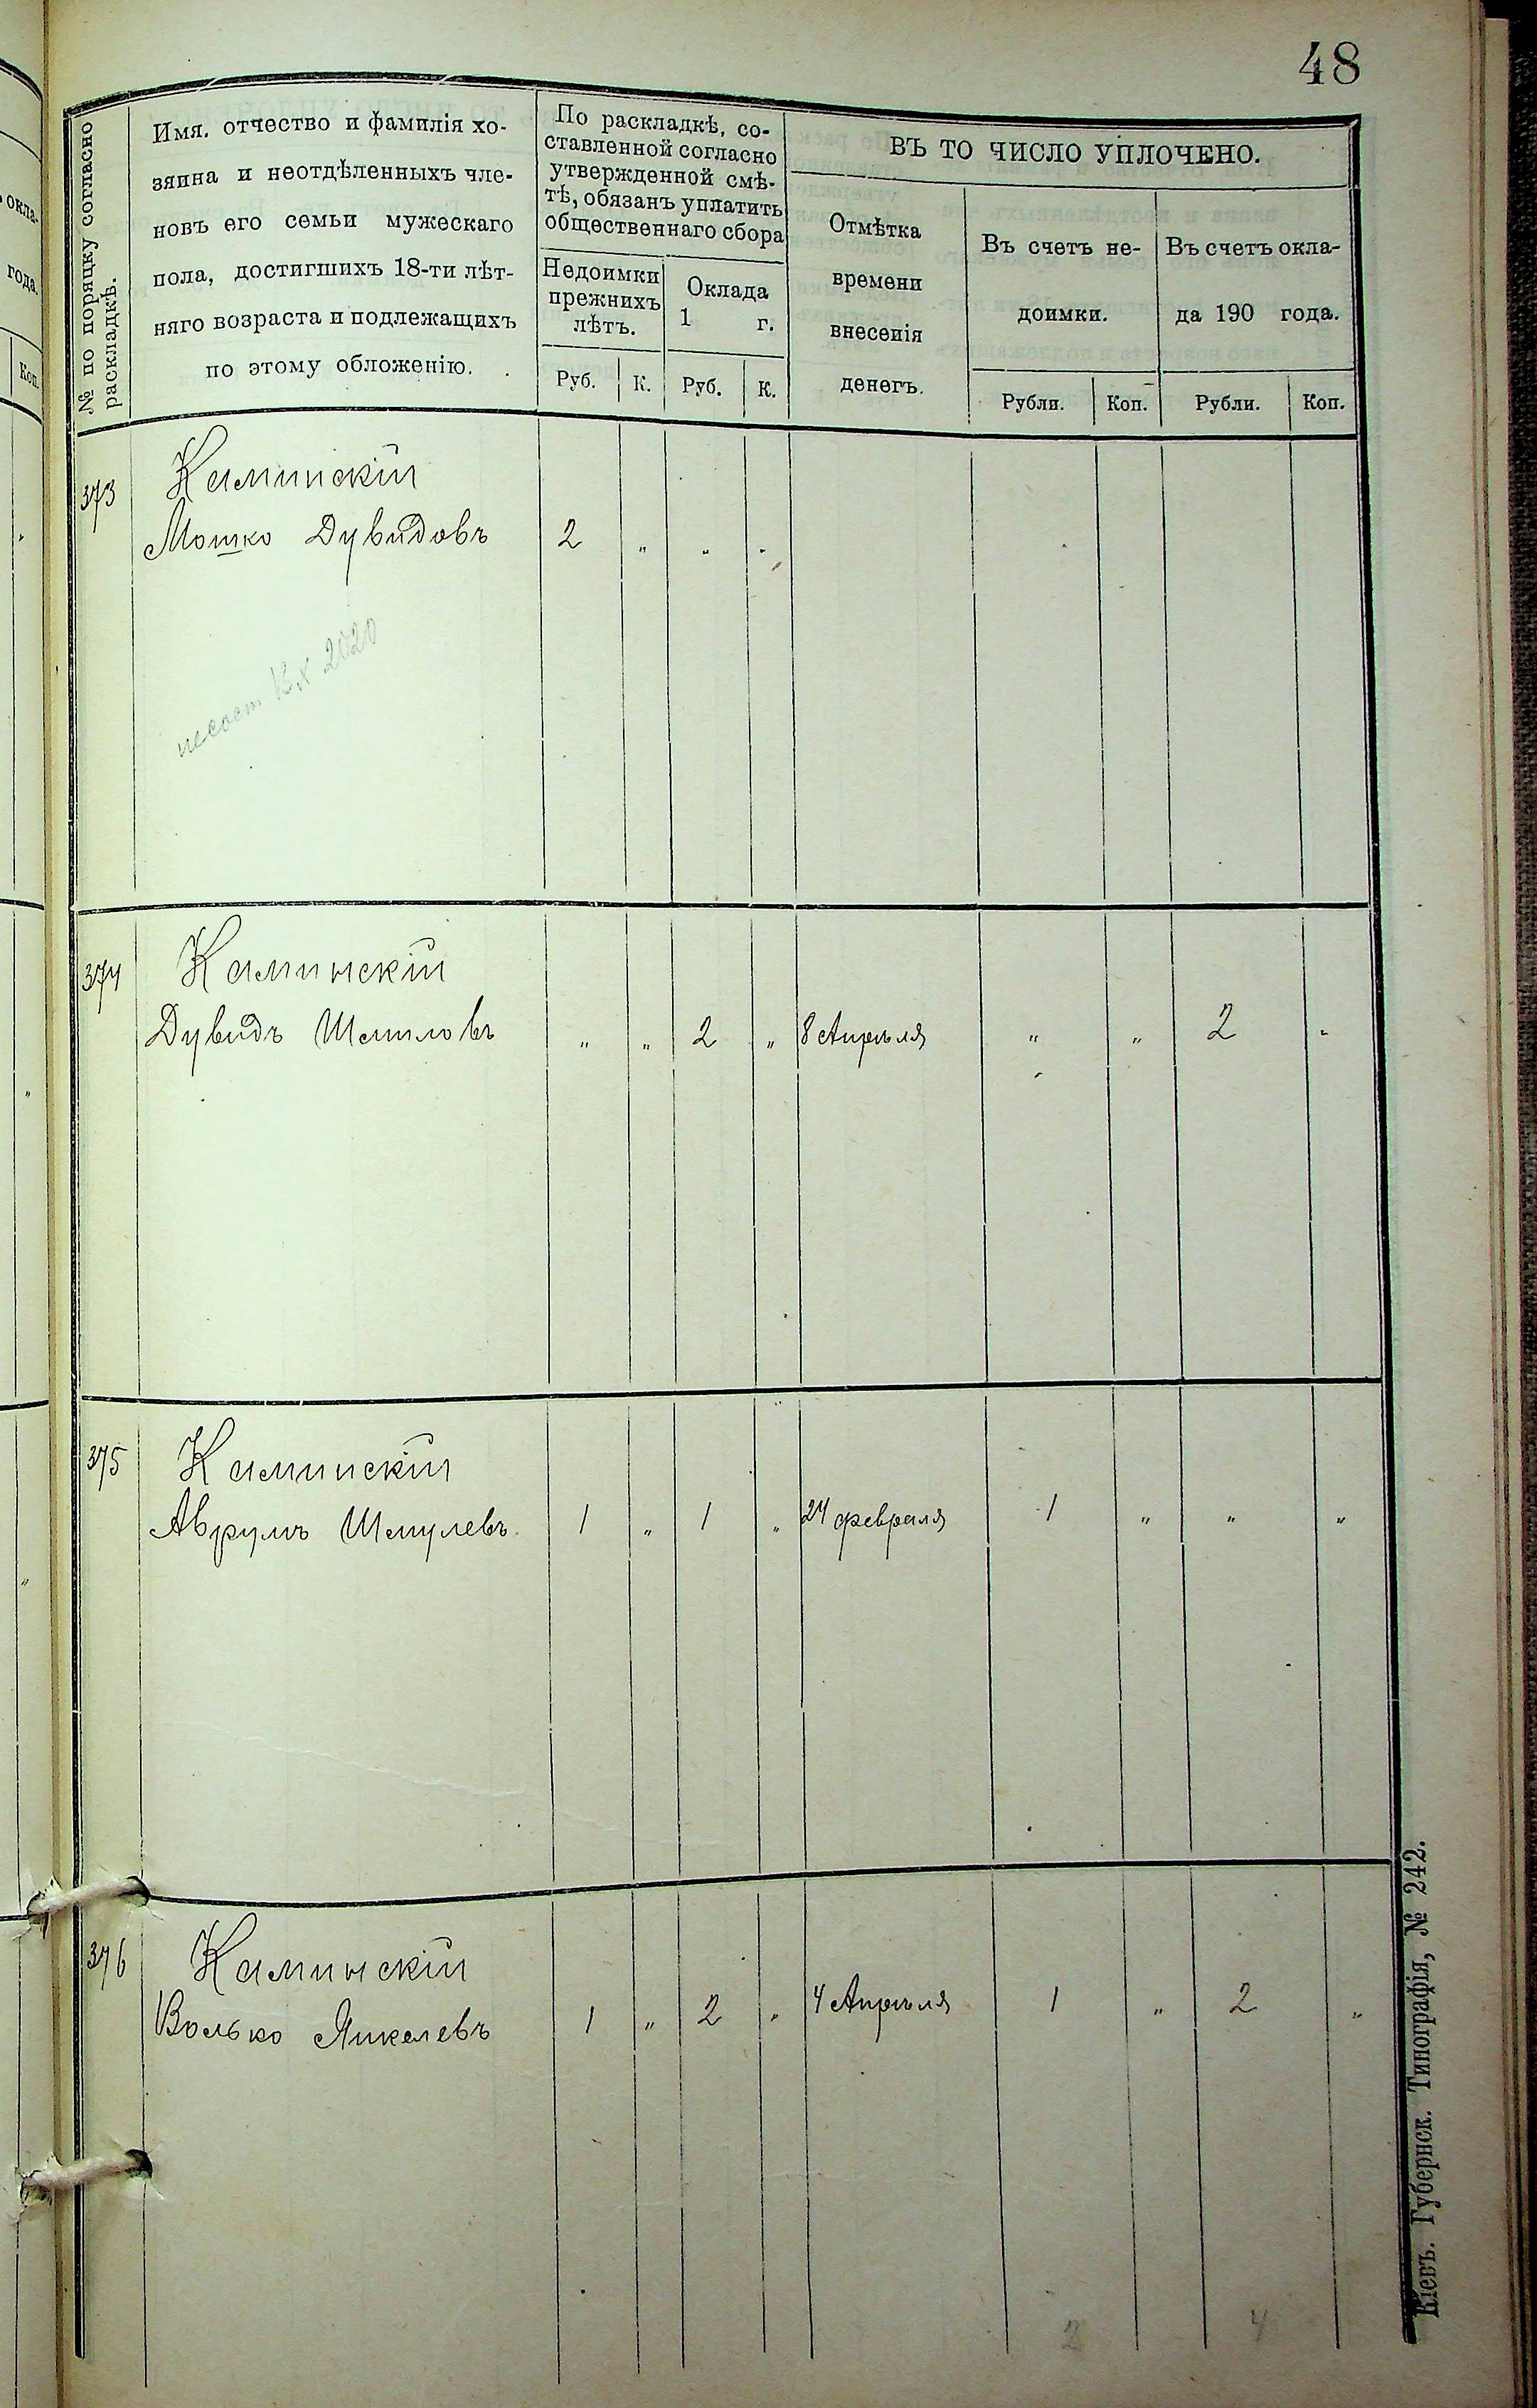 48
№ по поряцку согласно
раскладкѣ.
Имя. отчество и фамилія хо-
зяина и неотдѣленныхъ чле-
новъ его семьи мужескаго
пола, достигшихъ 18-ти лѣт-
няго возраста и подлежащихъ
по этому обложенію.
По раскладкѣ, со-
ставленной согласно
утвержденной смѣ-
тѣ, обязанъ уплатить
общественнаго сбора
Недоимки
прежнихъ
лѣтъ.
Оклада
1 г.
Руб. К. Руб. К.
ВЪ ТО ЧИСЛО УПЛОЧЕНО.
Отмѣтка
времени
внесенія
денегъ.
Въ счетъ не-
доимки.
Въ счетъ окла-
да 190 года.
Рубли. Коп. Рубли. Коп.
окла-
года.
Коп.
373 Каминскій
Мошко Дувидовъ 2 " " "
2020
374 Каминскій
Дувидъ Шмиловъ " " 2 " 8 Апрѣля " " 2 "
375 Каминскій
Аврумъ Шмулевъ. 1 " 1 " 24 февраля 1 " " "
376 Каминскій
Волько Янкелевъ 1 " 2 " 4 Апрѣля 1 " 2 "
2 4
Кіевъ. Губернск. Типографія, № 242.